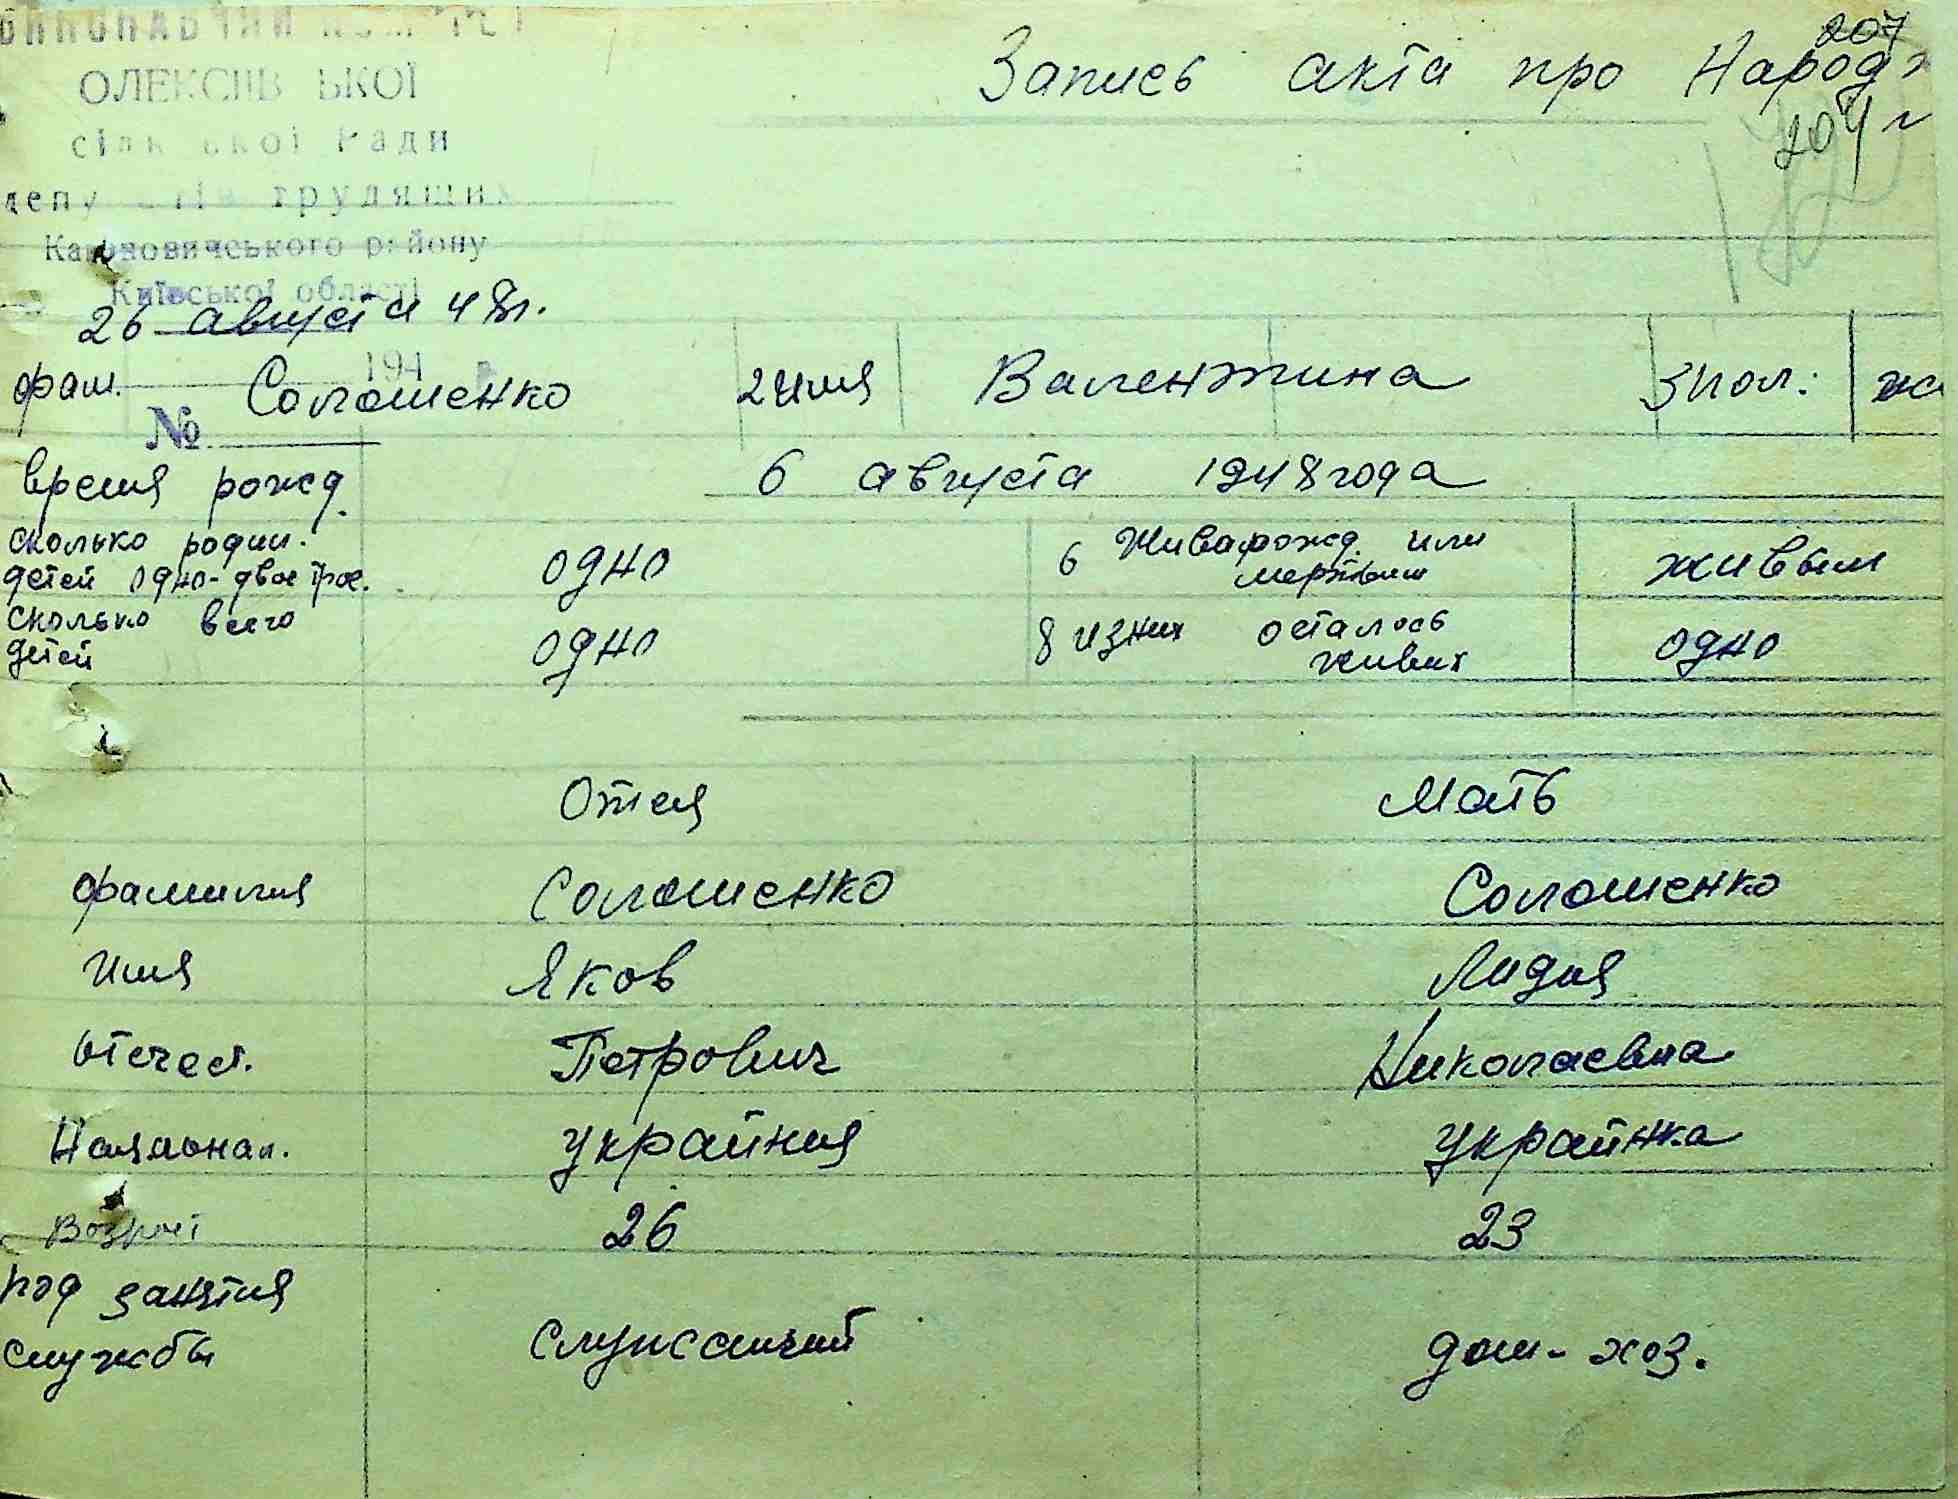 207
Запись акта про Народж
204 г
ОЛЕКСІЇВ ЬКОЇ
сіль ької Ради
депу атів трудящих
Кагановичського району
Київської області
26 августа 48г.
194
фам. Солошенко 2 имя Валентина 3 пол: ж
№
время рожд. 6 августа 1948 года
сколько родил. детей одно-двое трое. одно 6 Живарожд. или мертвым живым
сколько всего детей одно 8 из них осталось живых одно
Отец Мать
фамилия Солошенко Солошенко
Имя Яков Лидия
отечест. Петрович Николаевна
Национал. украйнец украйнка
Возраст 26 23
род занятия службы служащий дом-хоз.